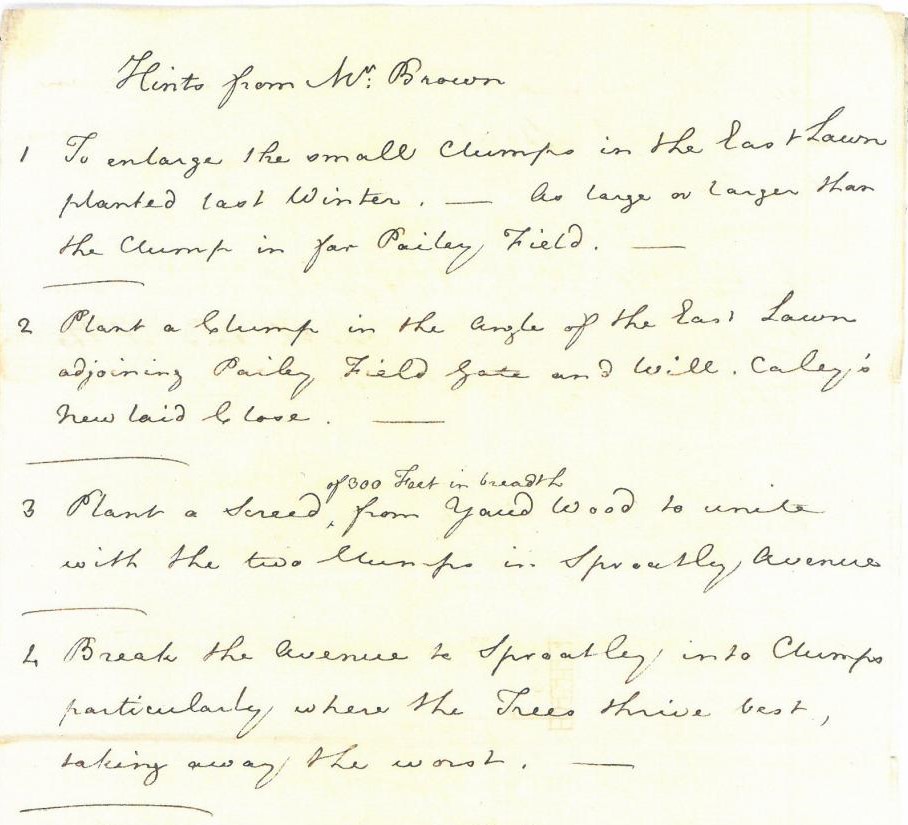 Hints from Mr. Brown
1 To enlarge the small Clumps in the East Lawn
planted last Winter. — As large or larger than
the Clump in far Pailey Field. —
2 Plant a Clump in the Angle of the East Lawn
adjoining Pailey Field Gate and Will. Caley's
New laid Close. —
of 300 Feet in breadth
3 Plant a Screed ‸ from Yaud Wood to unite
with the two Clumps in Sproatley Avenue
4 Break the Avenue to Sproatley into Clumps
particularly where the Trees thrive best,
taking away the worst. —